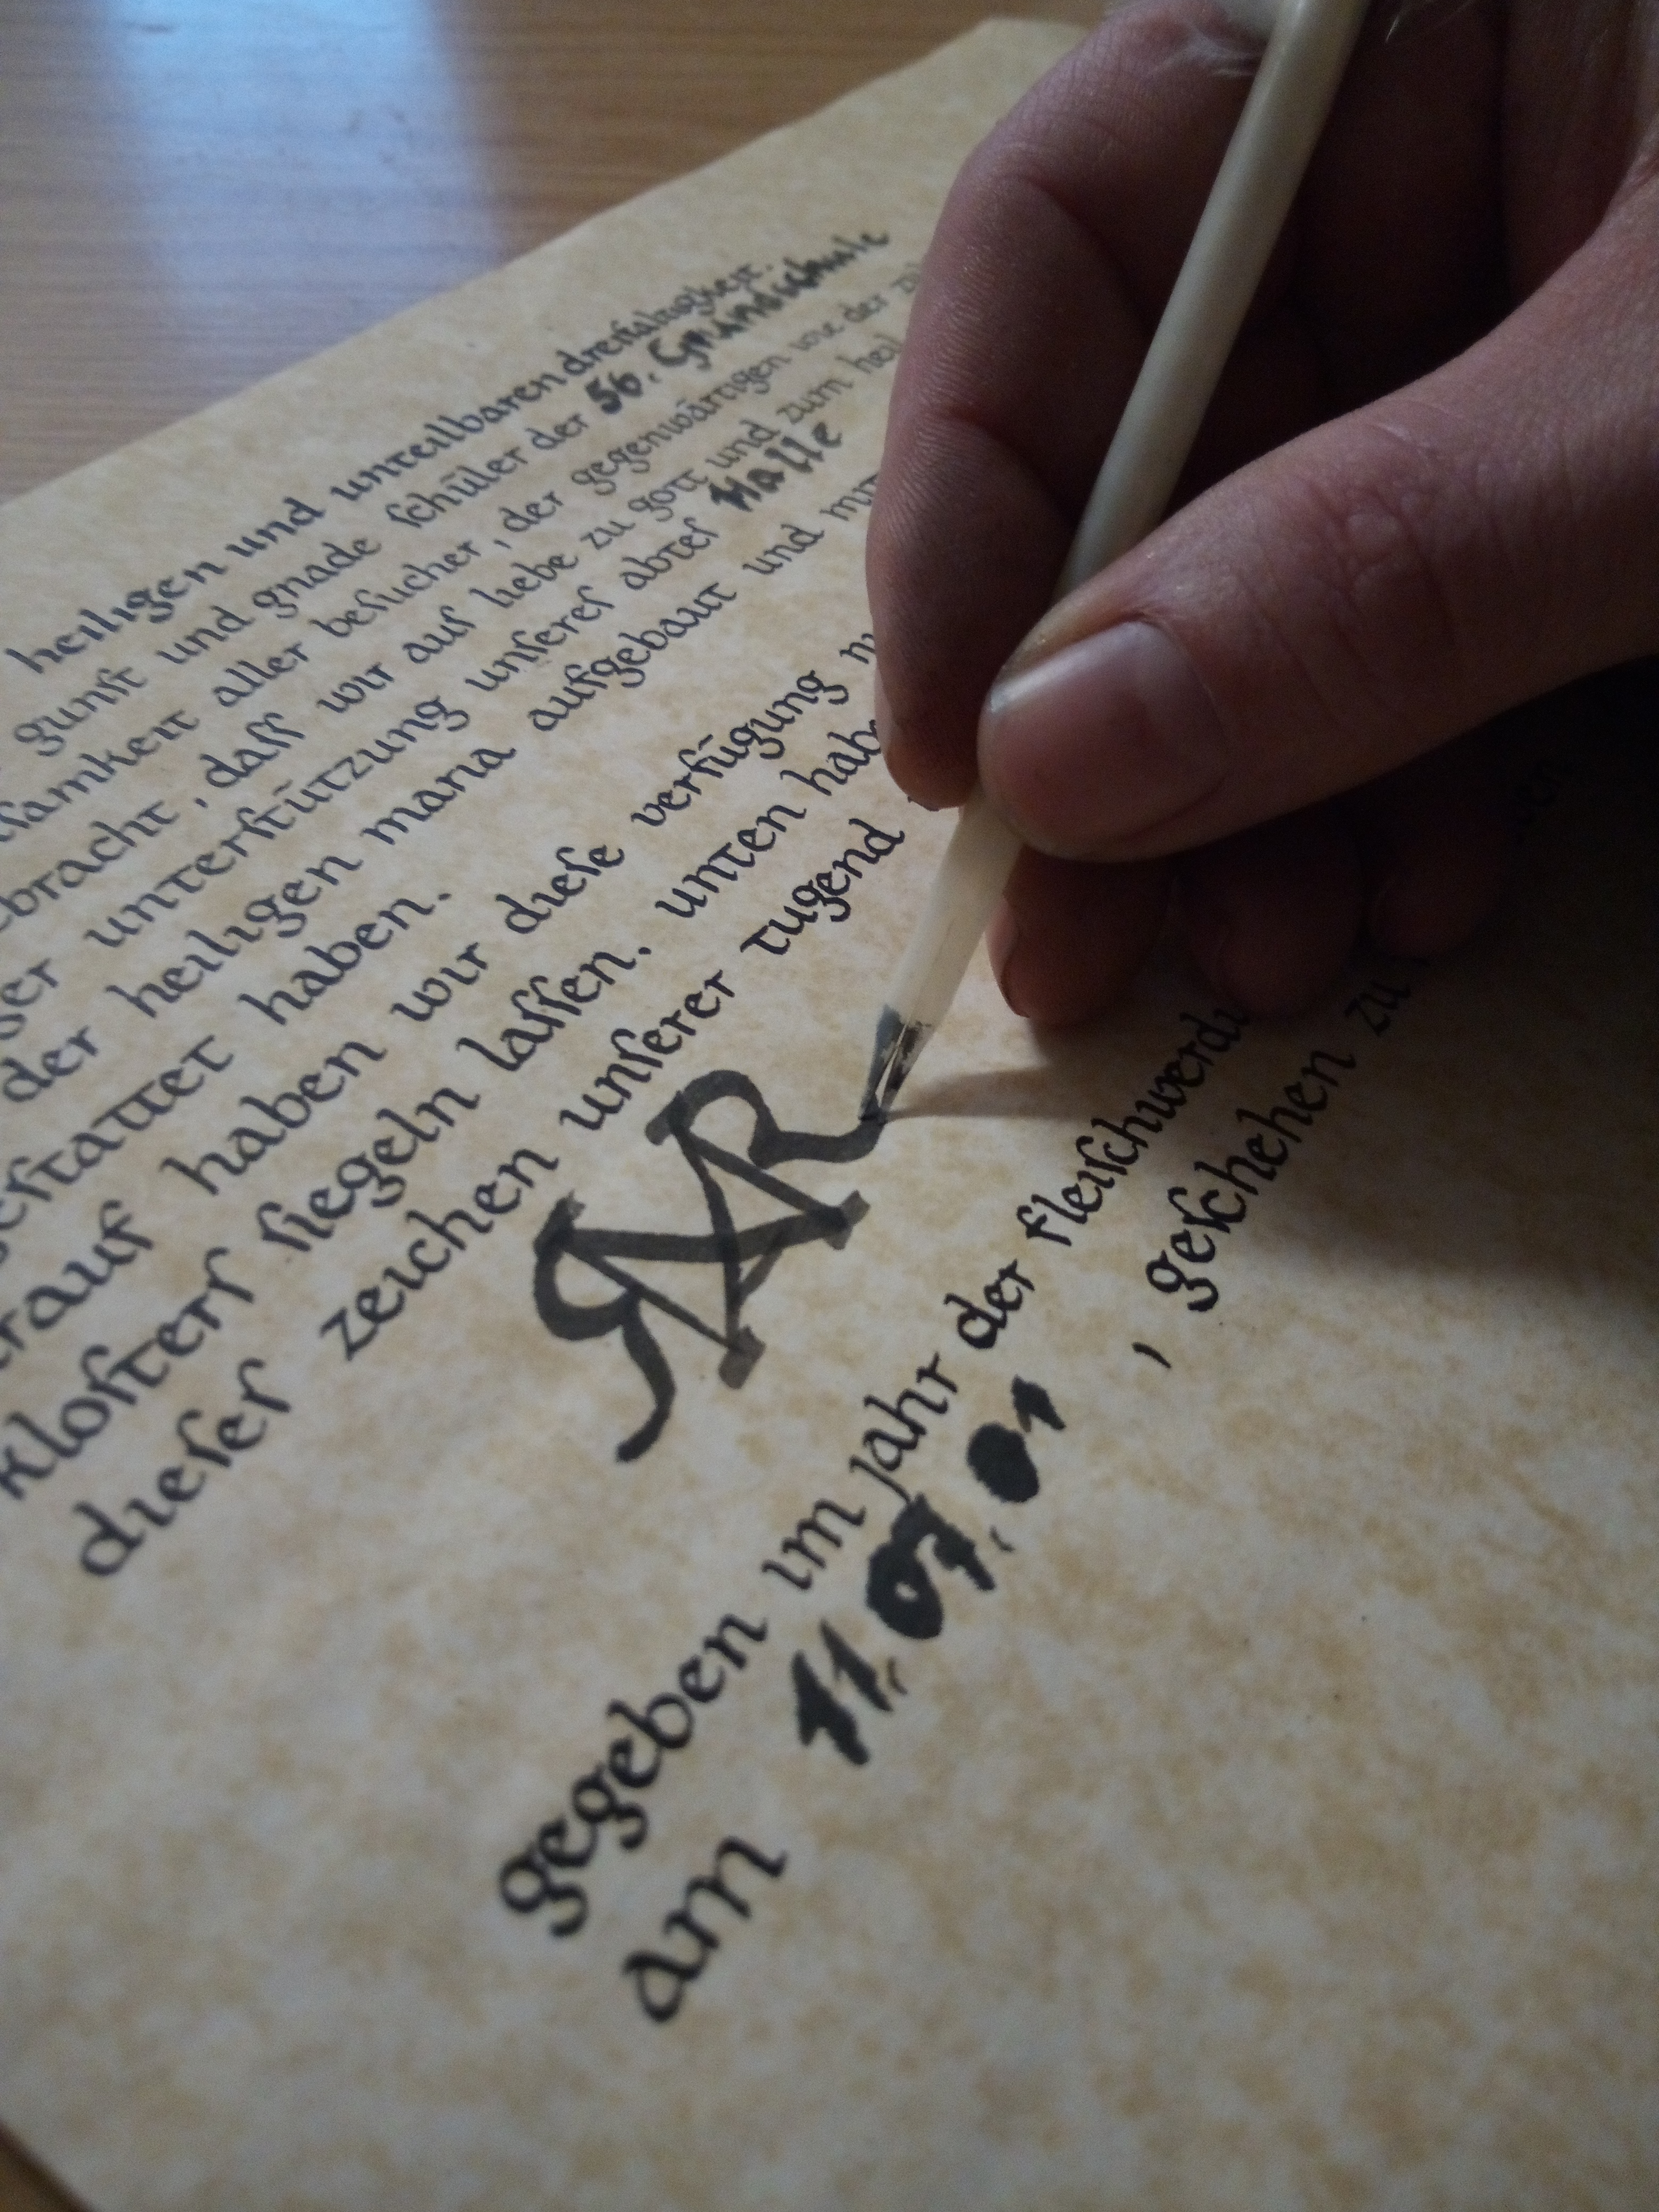 heiligen und unteilbaren dreifaltigkeit.
gunſt und gnade ſchüler der 56. Grundschule
ſamkeit aller beſucher, der gegenwärtigen wie der
ebracht, daſſ wir auſ liebe zu gott und zum heil
unterſtützung unſereſ abteſ Halle
der heiligen maria aufgebaut und mit
haben.
haben wir dieſe verfügung
kloſterſ ſiegeln laſſen. unten hab
dieſer zeichen unſerer tugend
RAR
gegeben im jahr der fleiſchwerdu
am 11. 07. 01 , geſchehen zu